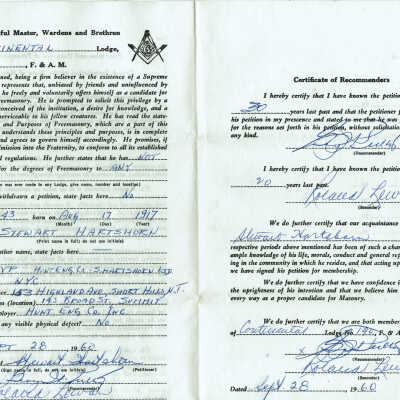 ful Master, Wardens and Brethren
INENTAL Lodge,
, F. & A. M.
ned, being a firm believer in the existence of a Supreme
represents that, unbiased by friends and uninfluenced by
he freely and voluntarily offers himself as a candidate for
Freemasonry. He is prompted to solicit this privilege by a
conceived of the institution, a desire for knowledge, and a
serviceable to his fellow creatures. He has read the state-
and Purposes of Freemasonry, which are a part of this
understands these principles and purposes, is in complete
and agrees to govern himself accordingly. He promises, if
dmission into the Fraternity, to conform to all its established
d regulations. He further states that he has NOT
for the degrees of Freemasonry to ANY
was ever made to any Lodge, give name, number and location)
withdrawn a petition, state facts here No
43 born on Aug 17 1917
(Month) (Day) (Year)
STEWART HARTSHORN
(Print name in full; do not use initials)
other name, state facts here
N.Y.C.
HIGHLAND AVE, SHORT HILLS N.J.
ss (location). 193 BROAD ST. SUMMIT
ployer HUNT ENG CO INC.
any visible physical defect? No
28 1960
Stewart Hartshorn
(Sign name in full; do not use initials) (Petitioner)
(Recommender)
Certificate of Recommenders
I hereby certify that I have known the petitioner
20 years last past and that the petitioner
his petition in my presence and stated to me that he was
for the reasons set forth in his petition, without solicitation
any kind.
(Recommender)
I hereby certify that I have known the petit
20 years last past.
Roland Lewan
(Recommender)
We do further certify that our acquaintance
Stewart Hartshorn
respective periods above mentioned has been of such a chara
ample knowledge of his life, morals, conduct and general repu
ing in the community in which he resides, and that acting upo
we have signed his petition for membership.
We do further certify that we have confidence
the uprightness of his intentions and that we believe him
every way as a proper candidate for Masonry.
We do further certify that we are both member
of Continental Lodge No. 190, F. & A
(Recommender)
Roland Lewan
(Recommender)
Dated Sept 28 1960